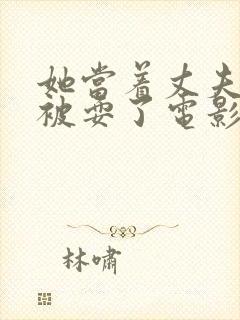 她当着丈夫
被耍了电影
林啸